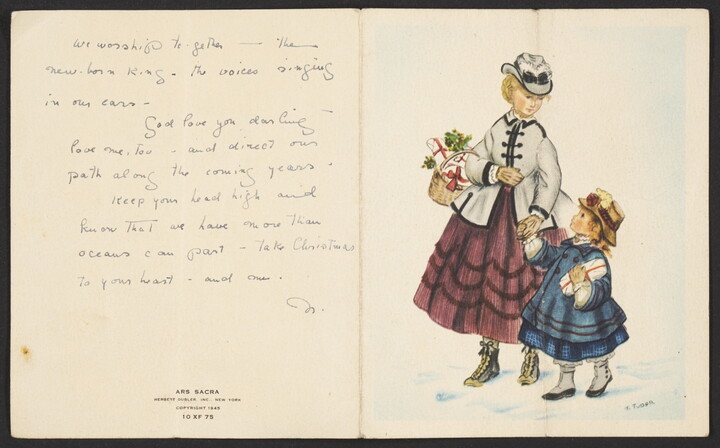 we worship together — the
new-born King - the voices singing
in our ears -
God love you darling
love me, too - and direct our
path along the coming years.
Keep your head high and
know that we have more than
oceans can part - take Christmas
to your heart - and me.
ARS SACRA
HERBERT DUBLER, INC., NEW YORK
COPYRIGHT 1945
10 XF 75
T. TUDOR